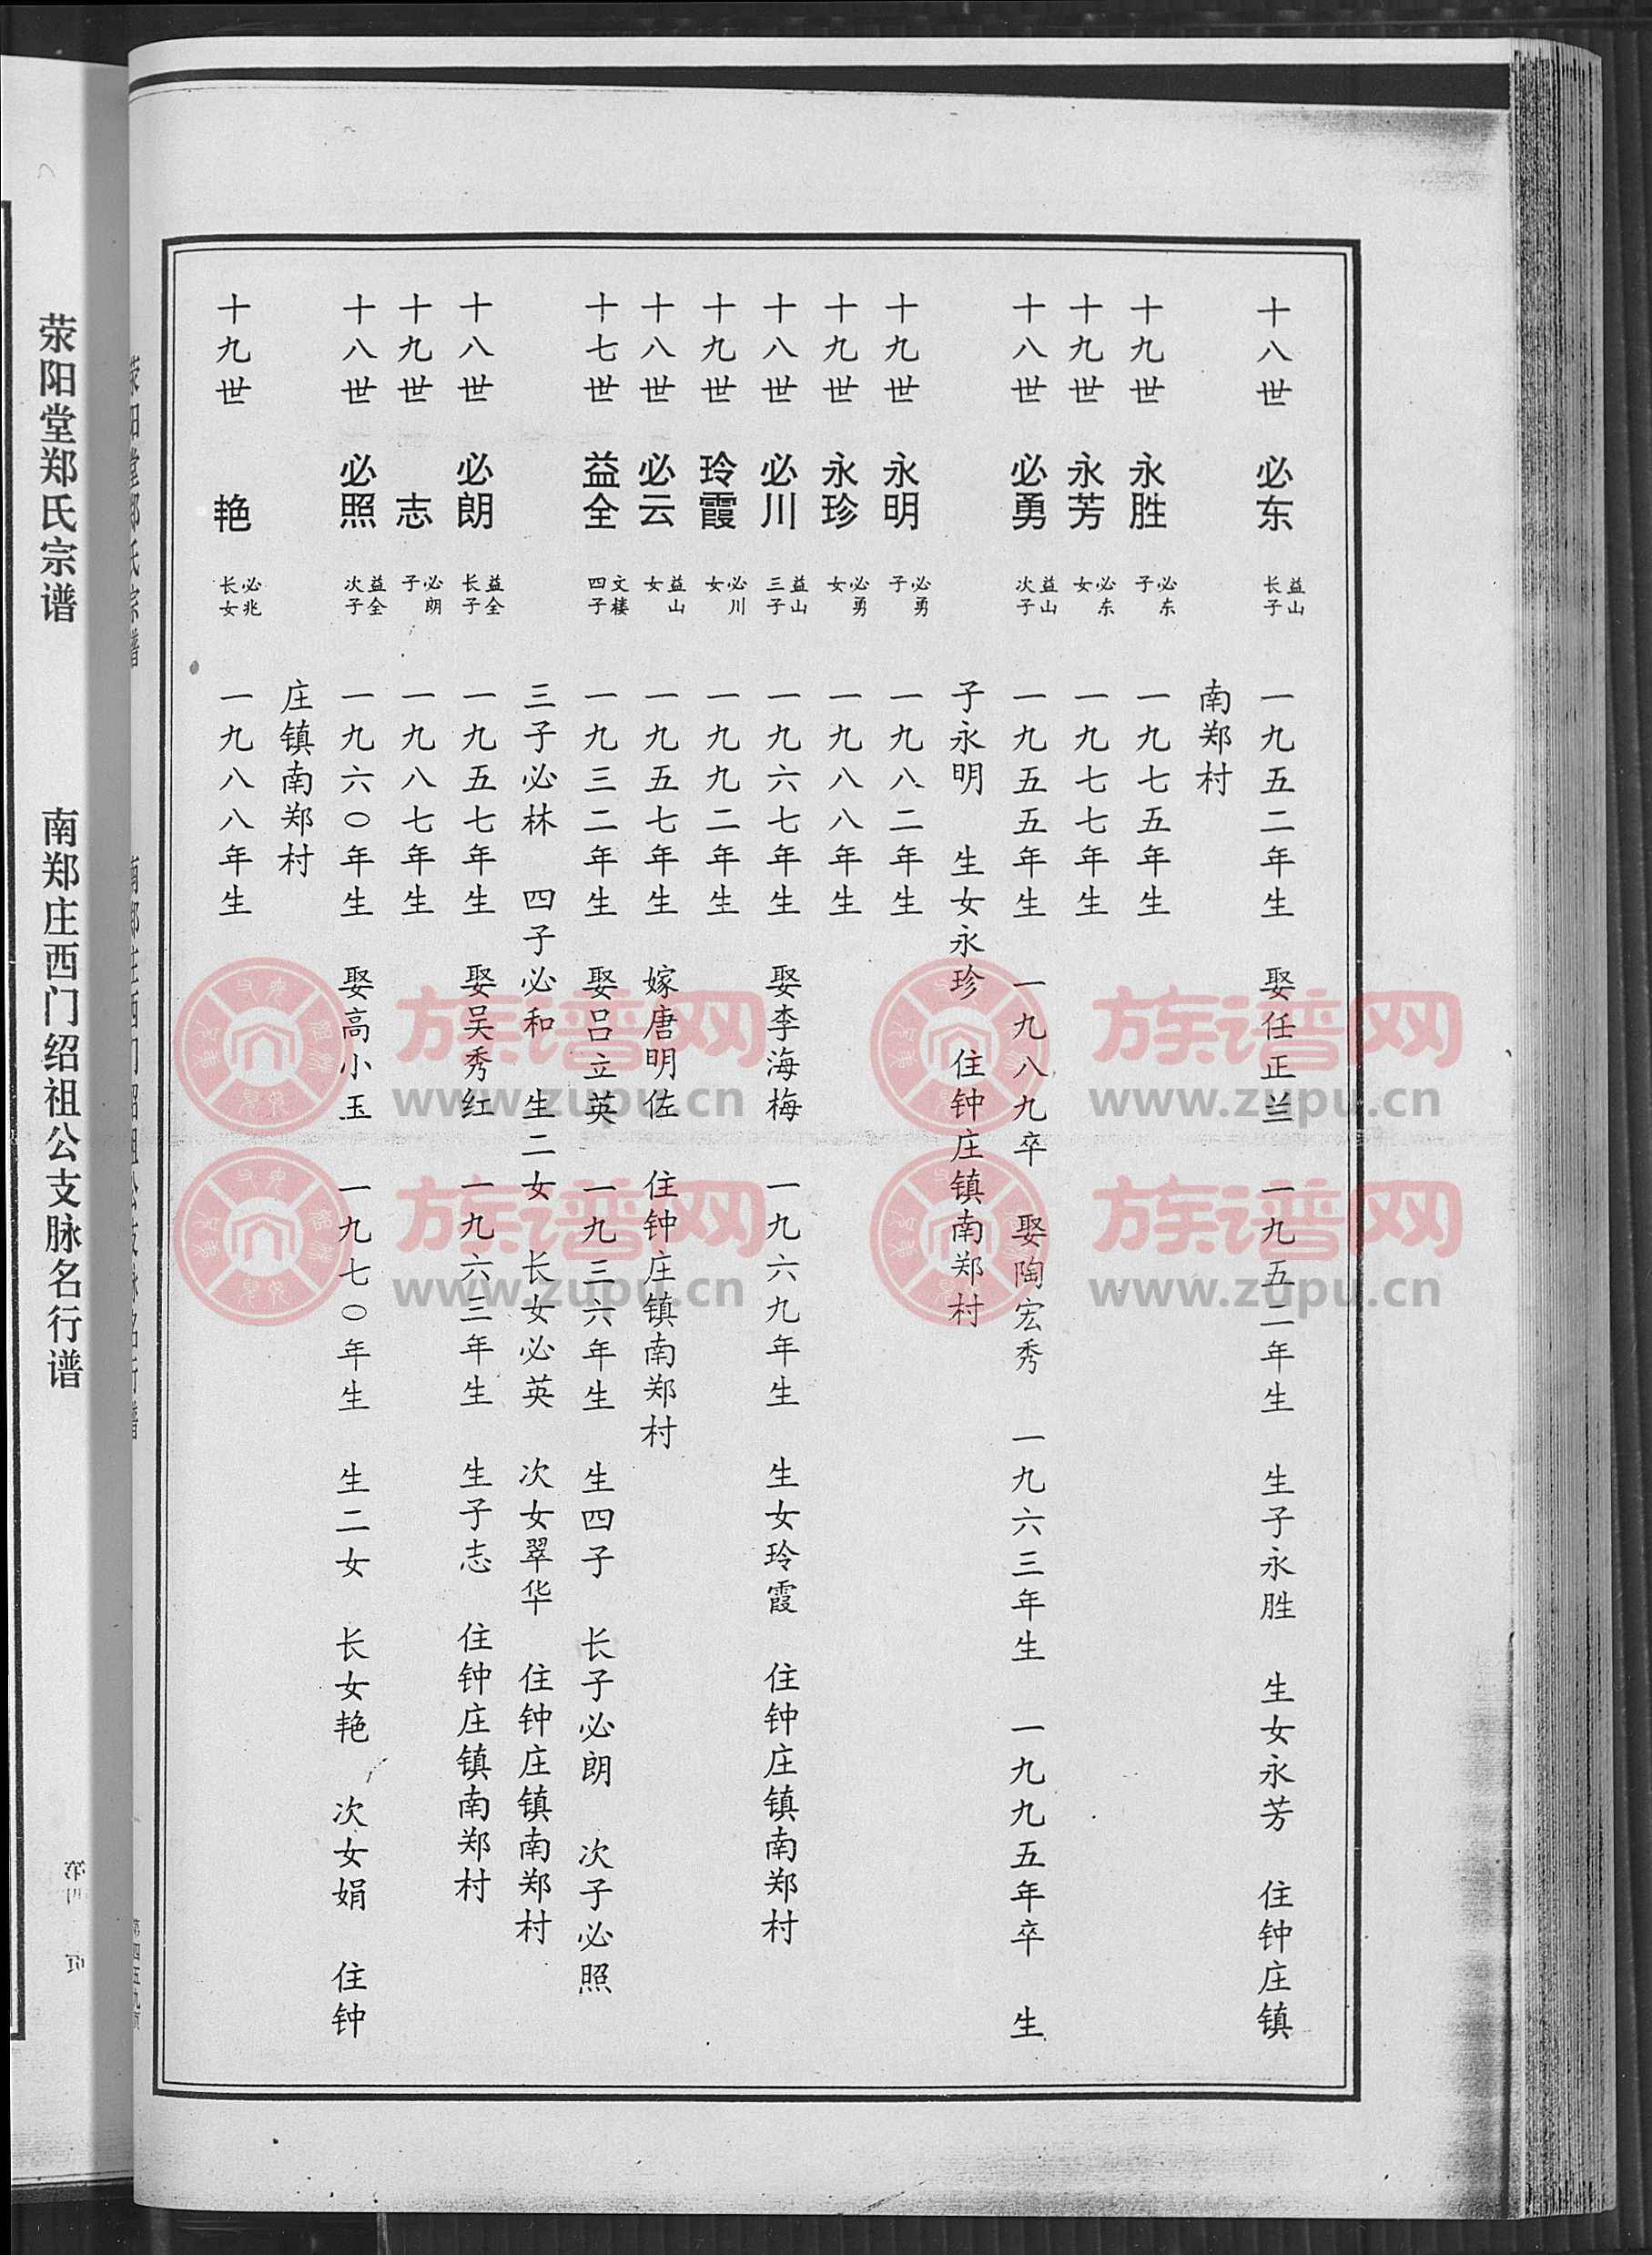 十八世 必东 益山长子 一九五二年生 娶任正兰 一九五二年生 生子永胜 生女永芳 住钟庄镇
南郑村
十九世 永胜 必东子 一九七五年生
十九世 永芳 必东女 一九七七年生
十八世 必勇 益山次子 一九五五年生 一九八九卒 娶陶宏秀 一九六三年生 一九九五年卒 生
子永明 生女永珍 住钟庄镇南郑村
十九世 永明 必勇子 一九八二年生
十九世 永珍 必勇女 一九八八年生
十八世 必川 益山三子 一九六七年生 娶李海梅 一九六九年生 生女玲霞 住钟庄镇南郑村
十九世 玲霞 必川女 一九九二年生
十八世 必云 益山女 一九五七年生 嫁唐明佐 住钟庄镇南郑村
十七世 益全 文楼四子 一九三二年生 娶吕立英 一九三六年生 生四子 长子必朗 次子必照
三子必林 四子必和 生二女 长女必英 次女翠华 住钟庄镇南郑村
十八世 必朗 益全长子 一九五七年生 娶吴秀红 一九六三年生 生子志 住钟庄镇南郑村
十九世 志 必朗子 一九八七年生
十八世 必照 益全次子 一九六〇年生 娶高小玉 一九七〇年生 生二女 长女艳 次女娟 住钟
庄镇南郑村
十九世 艳 必兆长女 一九八八年生
荥阳堂郑氏宗谱 南郑庄西门绍祖公支脉名行谱 第四五九页
荥阳堂郑氏宗谱 南郑庄西门绍祖公支脉名行谱
族谱网 www.zupu.cn
族谱网 www.zupu.cn
族谱网 www.zupu.cn
族谱网 www.zupu.cn